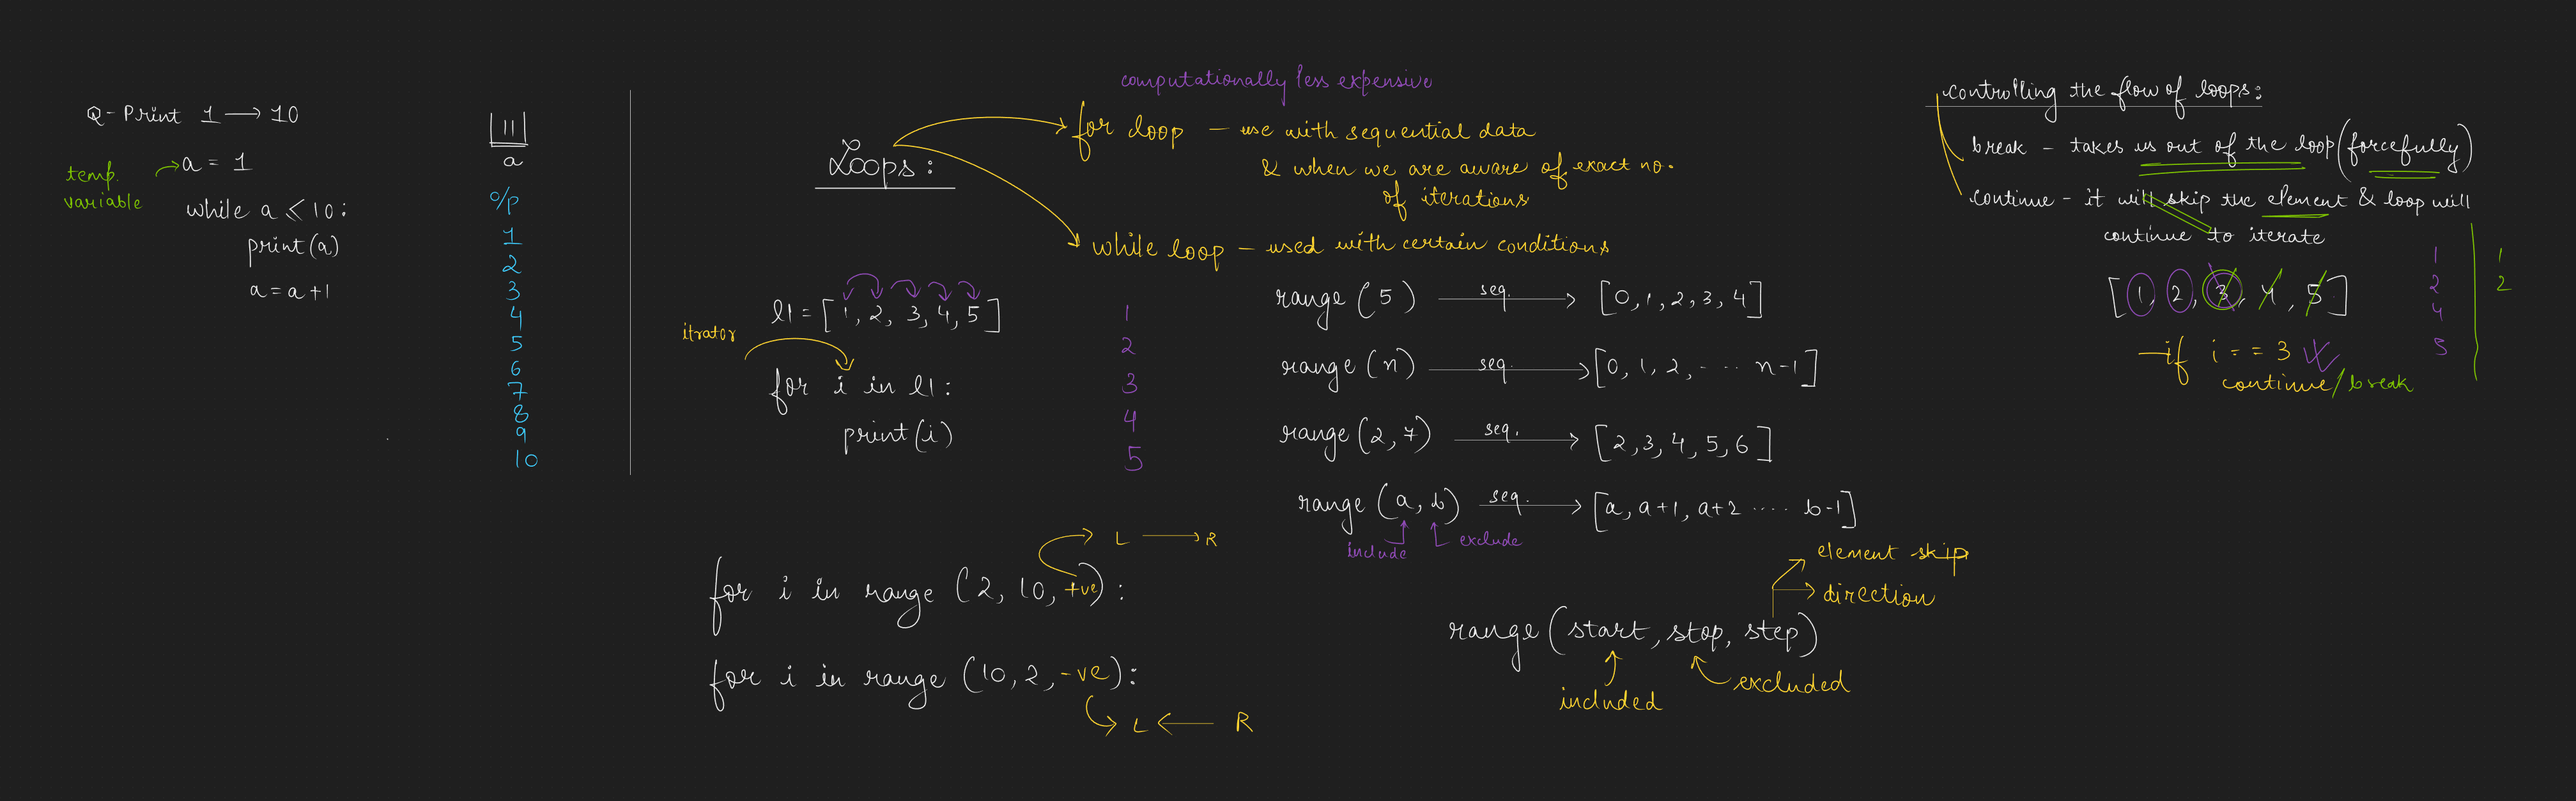 Q- Print 1 → 10
temp. variable
a = 1
while a ≤ 10:
print(a)
a = a+1
11
a
o/p
1
2
3
4
5
6
7
8
9
10
Loops:
computationally less expensive
for loop - use with sequential data
& when we are aware of exact no.
of iterations
while loop - used with certain conditions
l1 = [1, 2, 3, 4, 5]
itrator
for i in l1:
print(i)
1
2
3
4
5
range (5) seq. → [0, 1, 2, 3, 4]
range (n) seq. → [0, 1, 2, ... n-1]
range (2, 7) seq. → [2, 3, 4, 5, 6]
range (a, b) seq. → [a, a+1, a+2 .... b-1]
include exclude
L → R
for i in range (2, 10, +ve):
for i in range (10, 2, -ve):
L ← R
element skip
direction
range (start, stop, step)
included
excluded
controlling the flow of loops:
break - takes us out of the loop (forcefully)
continue - it will skip the element & loop will
continue to iterate
[1, 2, 3, 4, 5]
if i == 3
continue / break
1
2
4
5
1
2